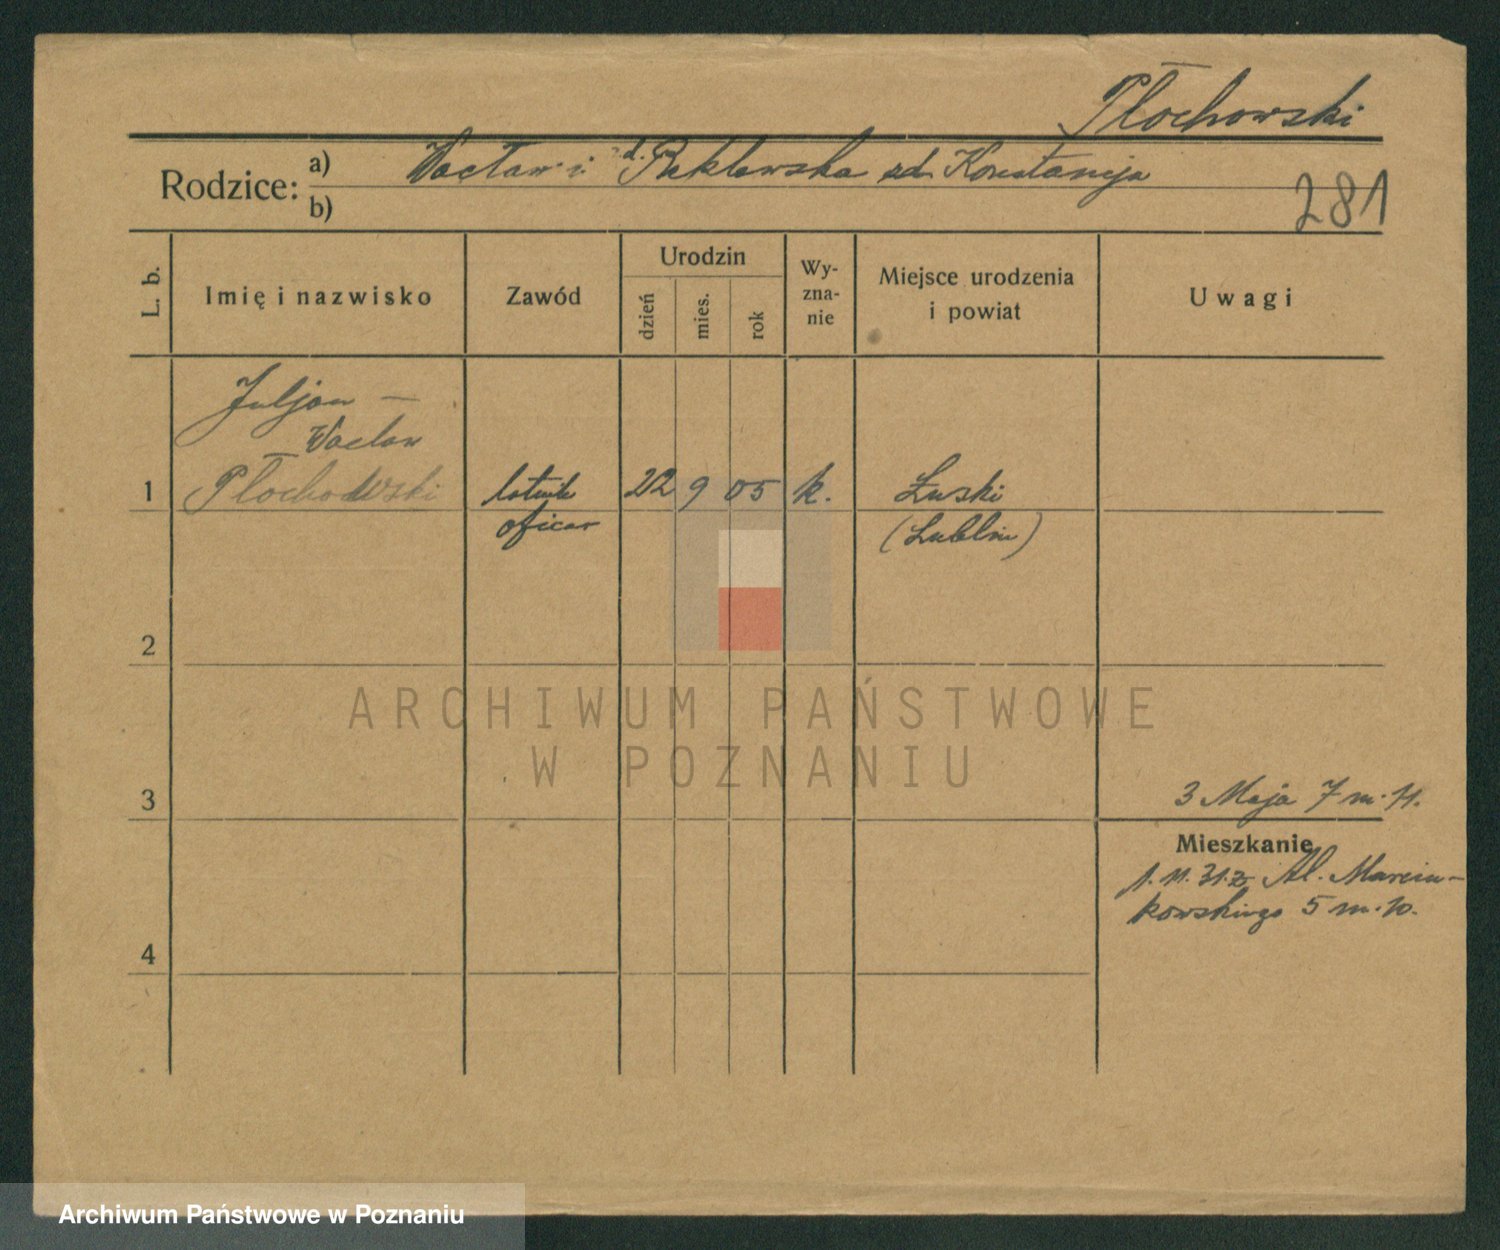 Płochowski
Rodzice: a) Wacław i d. Reklewska Konstancja
b)
281
L. b. Imię i nazwisko Zawód Urodzin dzień mies. rok Wy-zna-nie Miejsce urodzenia i powiat Uwagi
Juljan –
Wacław
1 Płochowski lotnik 22 9 05 k. Łuski
oficer (Lublin)
2
ARCHIWUM PAŃSTWOWE
W POZNANIU
3 3 Maja 7 m. 11.
Mieszkanie
1. 11. 31. z Al. Marcin-
kowskiego 5 m. 10.
4
Archiwum Państwowe w Poznaniu